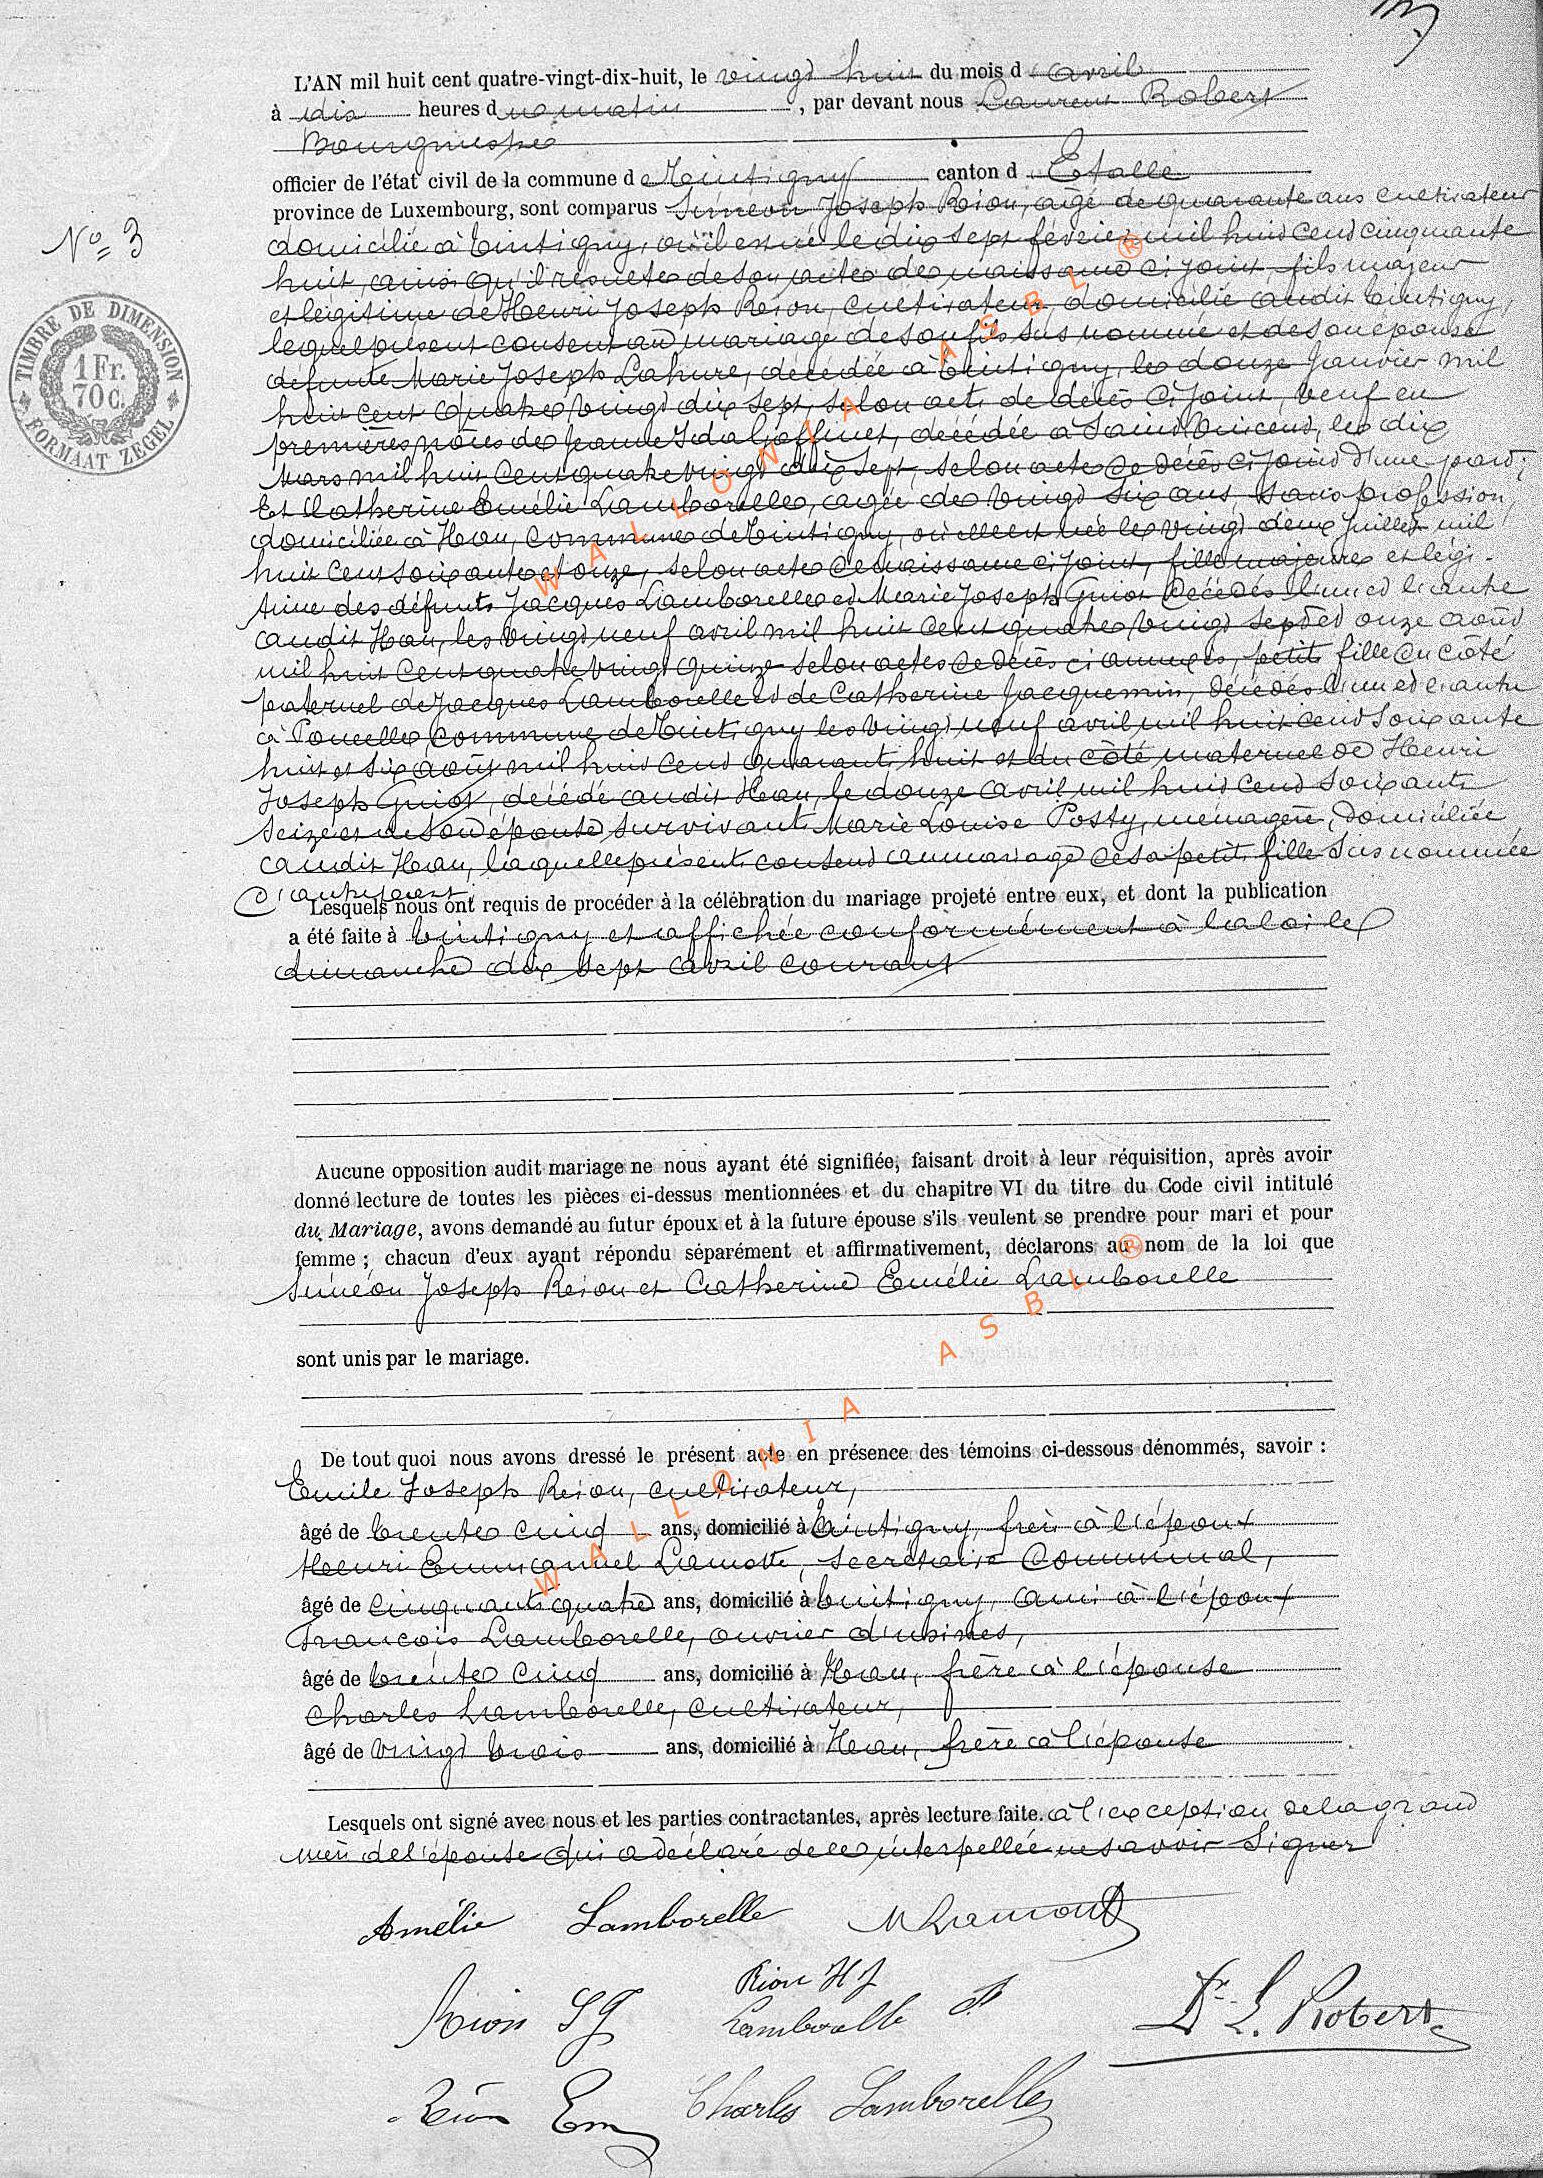 L'AN mil huit cent quatre-vingt-dix-huit, le vingt huit du mois d'avril
à dix heures du matin, par devant nous Laurent Robert
Bourgmestre
officier de l'état civil de la commune de Tintigny canton d'Etalle
province de Luxembourg, sont comparus Siméon Joseph Rion, âgé de quarante ans cultivateur
N° 3
domicilié à Tintigny, où il est né le dix sept février mil huit cent cinquante
huit, ainsi qu'il résulte de son acte de naissance ci joint, fils majeur
et légitime de Henri Joseph Rion, cultivateur, domicilié audit Tintigny,
lequel présent consent au mariage de son fils sus nommé et de son épouse
défunte Marie Joseph Lahure, décédée à Tintigny, le douze janvier mil
huit cent quatre vingt dix sept, selon acte de décès ci joint, veuf en
premières noces de Jeanne Ida Goffinet, décédée à Saint Vincent, le dix
mars mil huit cent quatre vingt dix sept, selon acte de décès ci joint d'une part;
Et Catherine Emélie Lamborelle, âgée de vingt six ans, sans profession,
domiciliée à Han, commune de Tintigny, où elle est née le vingt deux juillet mil
huit cent soixante et onze, selon acte de naissance ci joint, fille majeure et légi-
time des défunts Jacques Lamborelle et Marie Joseph Guiot décédés l'un et l'autre
audit Han, les vingt neuf avril mil huit cent quatre vingt sept et onze août
mil huit cent quatre vingt quinze selon actes de décès ci annexés, petite fille du côté
paternel de Jacques Lamborelle et de Catherine Jacquemin, décédés l'un et l'autre
à Poncelle commune de Tintigny les vingt neuf avril mil huit cent soixante
huit et six août mil huit cent quarante huit et du côté maternel de Henri
Joseph Guiot, décédé audit Han, le douze avril mil huit cent soixante
seize et de son épouse survivante Marie Louise Posty, ménagère, domiciliée
audit Han, laquelle présente consent au mariage de sa petite fille sus nommée
d'autre part;
Lesquels nous ont requis de procéder à la célébration du mariage projeté entre eux, et dont la publication
a été faite à Tintigny et affichée conformément à la loi le
dimanche dix sept avril courant
TIMBRE DE DIMENSION
1 Fr.
70 C.
FORMAAT ZEGEL
Aucune opposition audit mariage ne nous ayant été signifiée, faisant droit à leur réquisition, après avoir
donné lecture de toutes les pièces ci-dessus mentionnées et du chapitre VI du titre du Code civil intitulé
du Mariage, avons demandé au futur époux et à la future épouse s'ils veulent se prendre pour mari et pour
femme ; chacun d'eux ayant répondu séparément et affirmativement, déclarons au nom de la loi que
Siméon Joseph Rion et Catherine Emélie Lamborelle
sont unis par le mariage.
De tout quoi nous avons dressé le présent acte en présence des témoins ci-dessous dénommés, savoir :
Emile Joseph Rion, cultivateur,
âgé de trente cinq ans, domicilié à Tintigny, frère à l'époux
Henri Emmanuel Lamotte, secrétaire communal,
âgé de cinquante quatre ans, domicilié à Tintigny, ami à l'époux
François Lamborelle, ouvrier d'usines,
âgé de trente cinq ans, domicilié à Han, frère à l'épouse
Charles Lamborelle, cultivateur,
âgé de vingt trois ans, domicilié à Han, frère à l'épouse
Lesquels ont signé avec nous et les parties contractantes, après lecture faite. à l'exception de la grand
mère de l'épouse qui a déclaré de ce interpellée ne savoir signer
Amélie Lamborelle
Rion H J
Rion S J Lamborelle F Dr L. Robert
Rion Em Charles Lamborelle
WALLONIA ASBL ®
WALLONIA ASBL ®